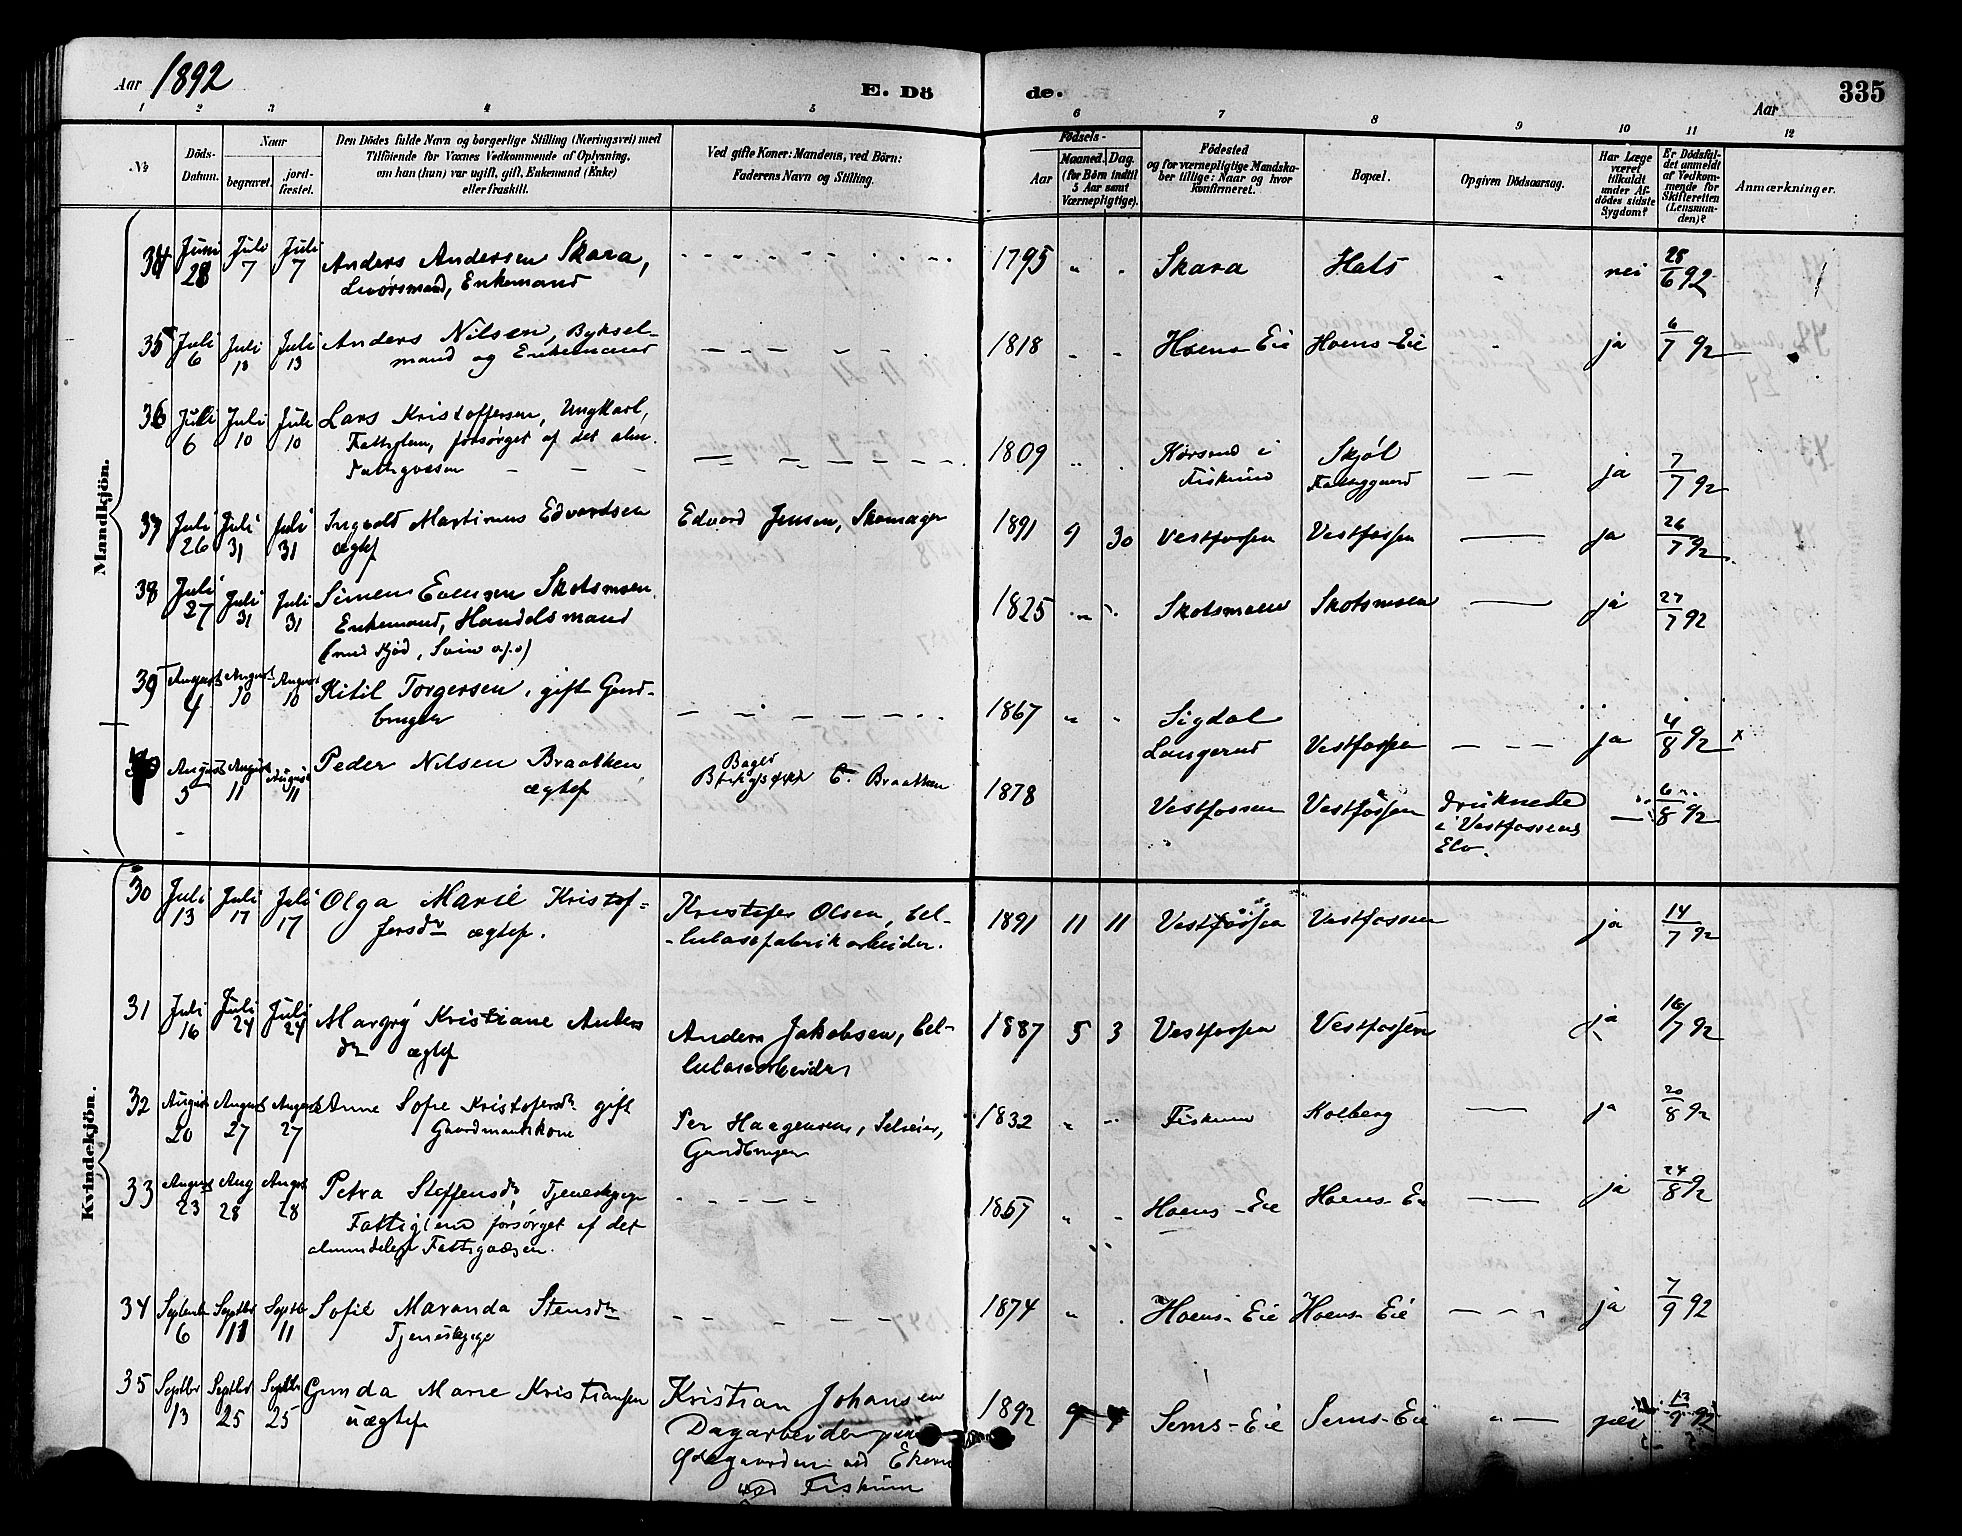 Aar 1892
E. Dö
de.
Aar
335
1 2 3 4 5 6 7 8 9 10 11 12
№
Döds-
Datum.
Naar
begravet.
jord-
fæstet.
Den Dödes fulde Navn og borgerlige Stilling (Næringsvei) med
Tilföiende for Voxnes Vedkommende af Oplysning,
om han (hun) var ugift, gift, Enkemand (Enke)
eller fraskilt.
Ved gifte Koner: Mandens, ved Börn:
Faderens Navn og Stilling.
Födsels-
Aar
Maaned. Dag.
(for Börn indtil
5 Aar samt
Værnepligtige).
Födested
og for værnepligtige Mandska-
ber tillige: Naar og hvor
konfirmeret.
Bopæl.
Opgiven Dödsaarsag.
Har Læge
været
tilkaldt
under Af-
dödes sidste
Sygdom?
Er Dödsfal-
det anmeldt
af Vedkom-
mende for
Skifteretten
(Lensman-
den)?
Anmærkninger.
Mandkjön.
34 Juni 28 Juli 7 Juli 7 Anders Andersen Skara,
Enkemand
1795 Skara Hals nei 28/6 92
35 Juli 6 Juli 13 Juli 13 Anders Nilsen, Byksel-
mand og Enkemand
1818 Hoens-Eie Hoens-Eie ja 6/7 92
36 Juli 6 Juli 10 Juli 10 Lars Kristoffersen, Ungkarl,
Fattiglem, forsørget af det alm.
Fattigvæsen
1809 i Fiskum Skjøl ja 7/7 92
37 Juli 26 Juli 31 Juli 31 Ingvald Martinus Edvardsen
ægtef
Edvard Jensen, Skomager
1891 9 30 Vestfossen Vestfossen ja 26/7 92
38 Juli 27 Juli 31 Juli 31 Simen Evensen Skotsmoen.
Enkemand, Handelsmand
(med Kjød, Svin o.s.v)
1825 Skotsmoen Skotsmoen ja 27/7 92
39 August 4 August 10 August 10 Kitil Torgersen, gift Gard-
bruger
1867 Sigdal
Langerud Vestfossen ja 4/8 92 x
40 August 5 August 11 August 11 Peder Nilsen Braathen
ægtef
Bager
Braathen
1878 Vestfossen Vestfossen druknede
i Vestfossens
Elv. 6/8 92
Kvindekjön.
30 Juli 13 Juli 17 Juli 17 Olga Marie Kristof-
fersdr ægtef.
Kristofer Olsen, Cel-
-lulosefabrikarbeider.
1891 11 11 Vestfossen Vestfossen ja 14/7 92
31 Juli 16 Juli 24 Juli 24 Margry Kristiane Anders
dr ægtef
Anders Jakobsen, Cel-
lulosearbeider
1887 5 3 Vestfossen Vestfossen ja 16/7 92
32 August 20 August 27 August 27 Anne Sofie Kristofersdr gift
Gaardmandskone
Per Haagensen, Selveier,
Gardbruger
1832 Fiskum Kolberg ja 20/8 92
33 August 23 Aug 28 August 28 Petra Steffensdr, Tjenestepige
Fattiglem forsørget af det
almindelige Fattigvæsen.
1857 Hoens-Eie Hoens-Eie ja 24/8 92
34 September 6 Septbr 11 Septbr 11 Sofie Maranda Stensdr
Tjenestepige
1874 Hoens-Eie Hoens-Eie ja 7/9 92
35 Septbr 13 Septbr 25 Septbr 25 Gunda Marie Kristiansen
uægtef
Kristian Johansen
Dagarbeider paa
ved
ved Fiskum
1892 Sems-Eie Sems-Eie nei 13/9 92